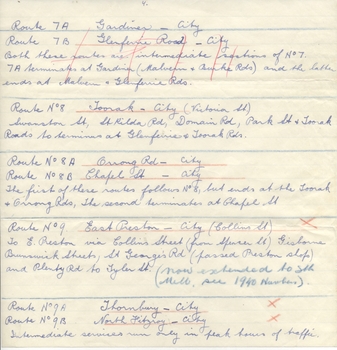 Route 7A Gardiner - City
Route 7B Glenferrie Road - City
Both these routes are intermediate sections of No 7.
7A terminates at Gardiner (Malvern & Burke Rds) and the latter
ends at Malvern & Glenferrie Rds.
Route No 8 Toorak - City (Victoria St)
Swanston St, St Kilda Rd, Domain Rd, Park St & Toorak
Roads to terminus at Glenferrie & Toorak Rds.
Route No 8A Orrong Rd - City
Route No 8B Chapel St - City
The first of these routes follows No 8, but ends at the Toorak
& Orrong Rds, The second terminates at Chapel St
Route No 9, East Preston - City (Collins St)
To E. Preston via Collins Street (from Spencer St) Gisborne
Brunswick Streets, St Georges Rd (passed Preston
and Plenty Rd to Tyler St. (now extended to
see 1940
Route No 9A Thornbury - City
Route No 9B North Fitzroy - City
Intermediate services run only in peak hours of traffic.